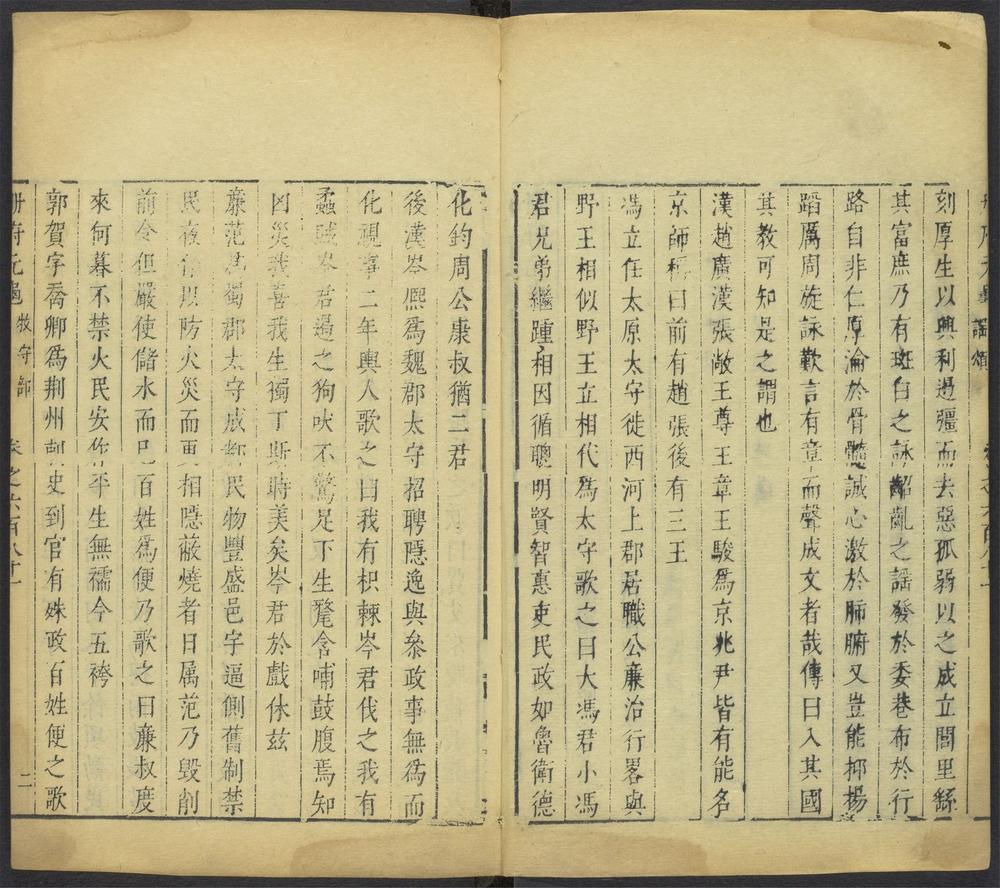 謡頌
刻厚生以興利過彊而去惡孤弱以之成立閭里繇
其富庶乃有斑白之詠齠齔之謡發於委巷布於行
路自非仁厚淪於骨髓誠心激於肺腑又豈能抑揚
蹈厲周旋詠歎言有章而聲成文者哉傳曰入其國
其教可知是之謂也
漢趙廣漢張敞王尊王章王駿爲京兆尹皆有能名
京師稱曰前有趙張後有三王
馮立任太原太守徙西河上郡居職公廉治行畧與
野王相似野王立相代爲太守歌之曰大馮君小馮
君兄弟繼踵相因循聰明賢智惠吏民政如魯衛德
化鈞周公康叔猶二君
後漢岑熈爲魏郡太守招聘隱逸與叅政事無爲而
化視事二年輿人歌之曰我有枳棘岑君伐之我有
蟊賊岑君遏之狗吠不驚足下生氂含哺鼓腹焉知
凶災我喜我生獨丁斯時美矣岑君於戲休兹
廉范爲蜀郡太守成都民物豐盛邑宇逼側舊制禁
民夜作以防火災而更相隱蔽燒者日属范乃毁削
前令但嚴使儲水而已百姓爲便乃歌之曰廉叔度
來何暮不禁火民安作平生無襦今五袴
郭賀字喬卿爲荆州刺史到官有殊政百姓便之歌
冊府元龜 牧守部 卷之六百八十一 二